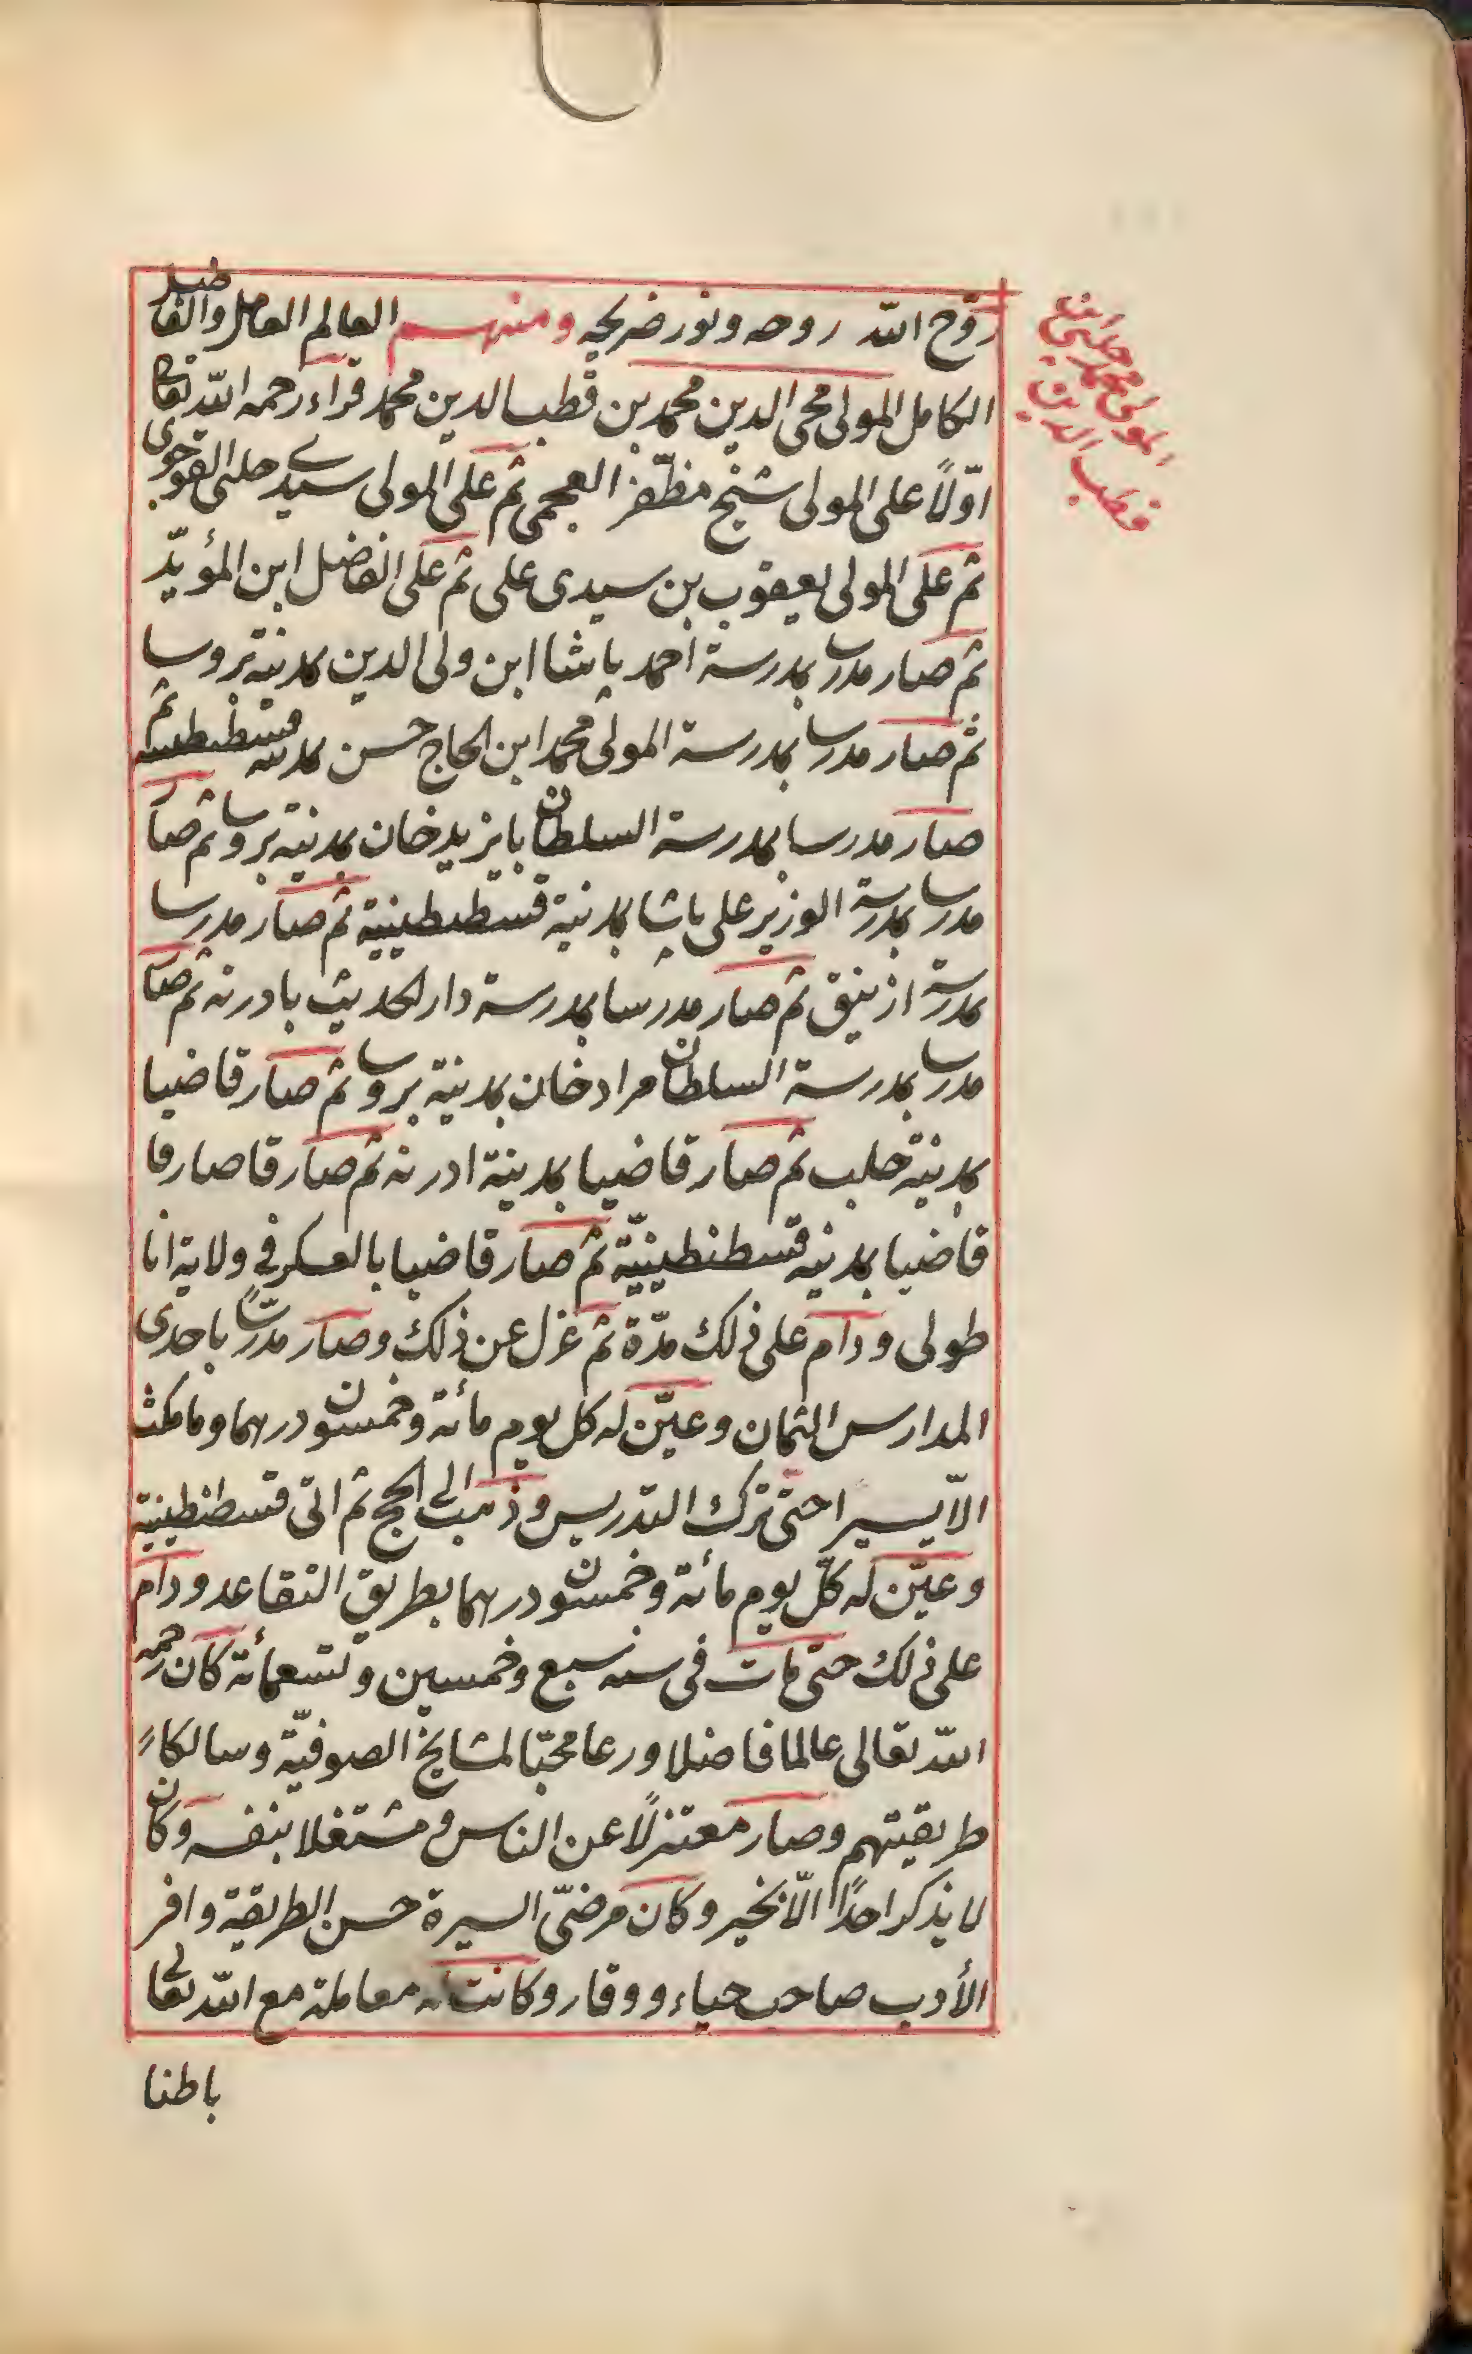 روّح الله روحه ونور ضريحه ومنهم العالم العامل والفاضل
الكامل المولى محى الدين محمد بن قطب الدين محمد قراء رحمه الله تعالى
اوّلاً على المولى شيخ مظفّر العجمى ثم على المولى سيدى چلبى القوجوى
ثم على المولى يعقوب بن سيدى على ثم على الفاضل ابن المؤيّد
ثم صار مدرسا بمدرسة احمد پاشا ابن ولى الدين بمدينة بروسا
ثم صار مدرسا بمدرسة المولى محمد ابن الحاج حسن بمدينة قسطنطينية ثم
صار مدرسا بمدرسة السلطان بايزيد خان بمدينة بروسا ثم صار
مدرسا بمدرسة الوزير على پاشا بمدينة قسطنطينية ثم صار مدرسا
بمدرسة ازنيق ثم صار مدرسا بمدرسة دار الحديث بادرنه ثم صار
مدرسا بمدرسة السلطان مراد خان بمدينة بروسا ثم صار قاضيا
بمدينة حلب ثم صار قاضيا بمدينة ادرنه ثم صار قا صار قا
قاضيا بمدينه قسطنطينيّة ثم صار قاضيا بالعسكر في ولاية انا
طولى ودام على ذلك مدّة ثم عزل عن ذلك وصار مدرّساً باحدى
المدارس الثمان وعيّن له كل يوم مائة وخمسون درهما وما مكث
الاّ يسيرا حتى ترك التدريس وذهب الى الحج ثم اتى قسطنطينية
وعيّن له كلّ يوم مائة وخمسون درهما بطريق التقاعد ودام
على ذلك حتى مات فى سنه سبع وخمسين وتسعمائة كان رحمه
الله تعالى عالما فاضلا ورعا محبّا لمشايخ الصوفيّة وسالكاً
طريقيتهم وصار معتزلاً عن الناس ومشتغلا بنفسه وكان
لا يذكر احداً الاّ بخير وكان مرضىّ السيرة حسن الطريقة وافر
الأدب صاحب حياء ووقار وكانت له معاملة مع الله تعالى
باطنا
المولى محمد چلبى ابن
قطب الدين